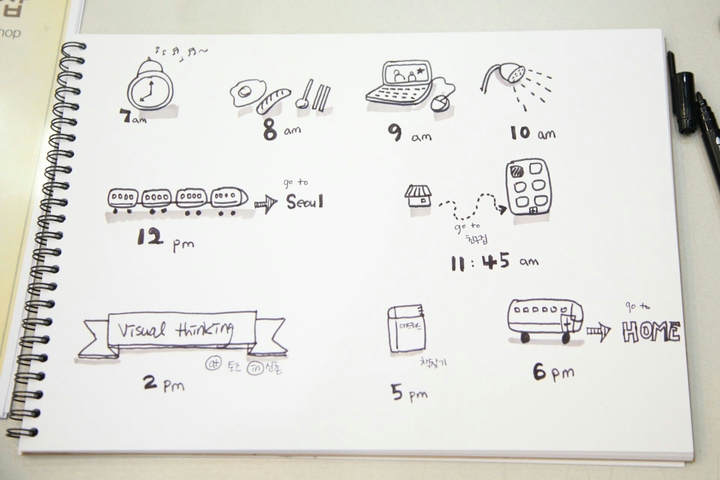 hop
7am
8 am
9 am
10 am
go to
Seoul
12 pm
go to
친구집
11:45 am
Visual thinking
at 토즈 in
2 pm
5 pm
go to
HOME
6 pm